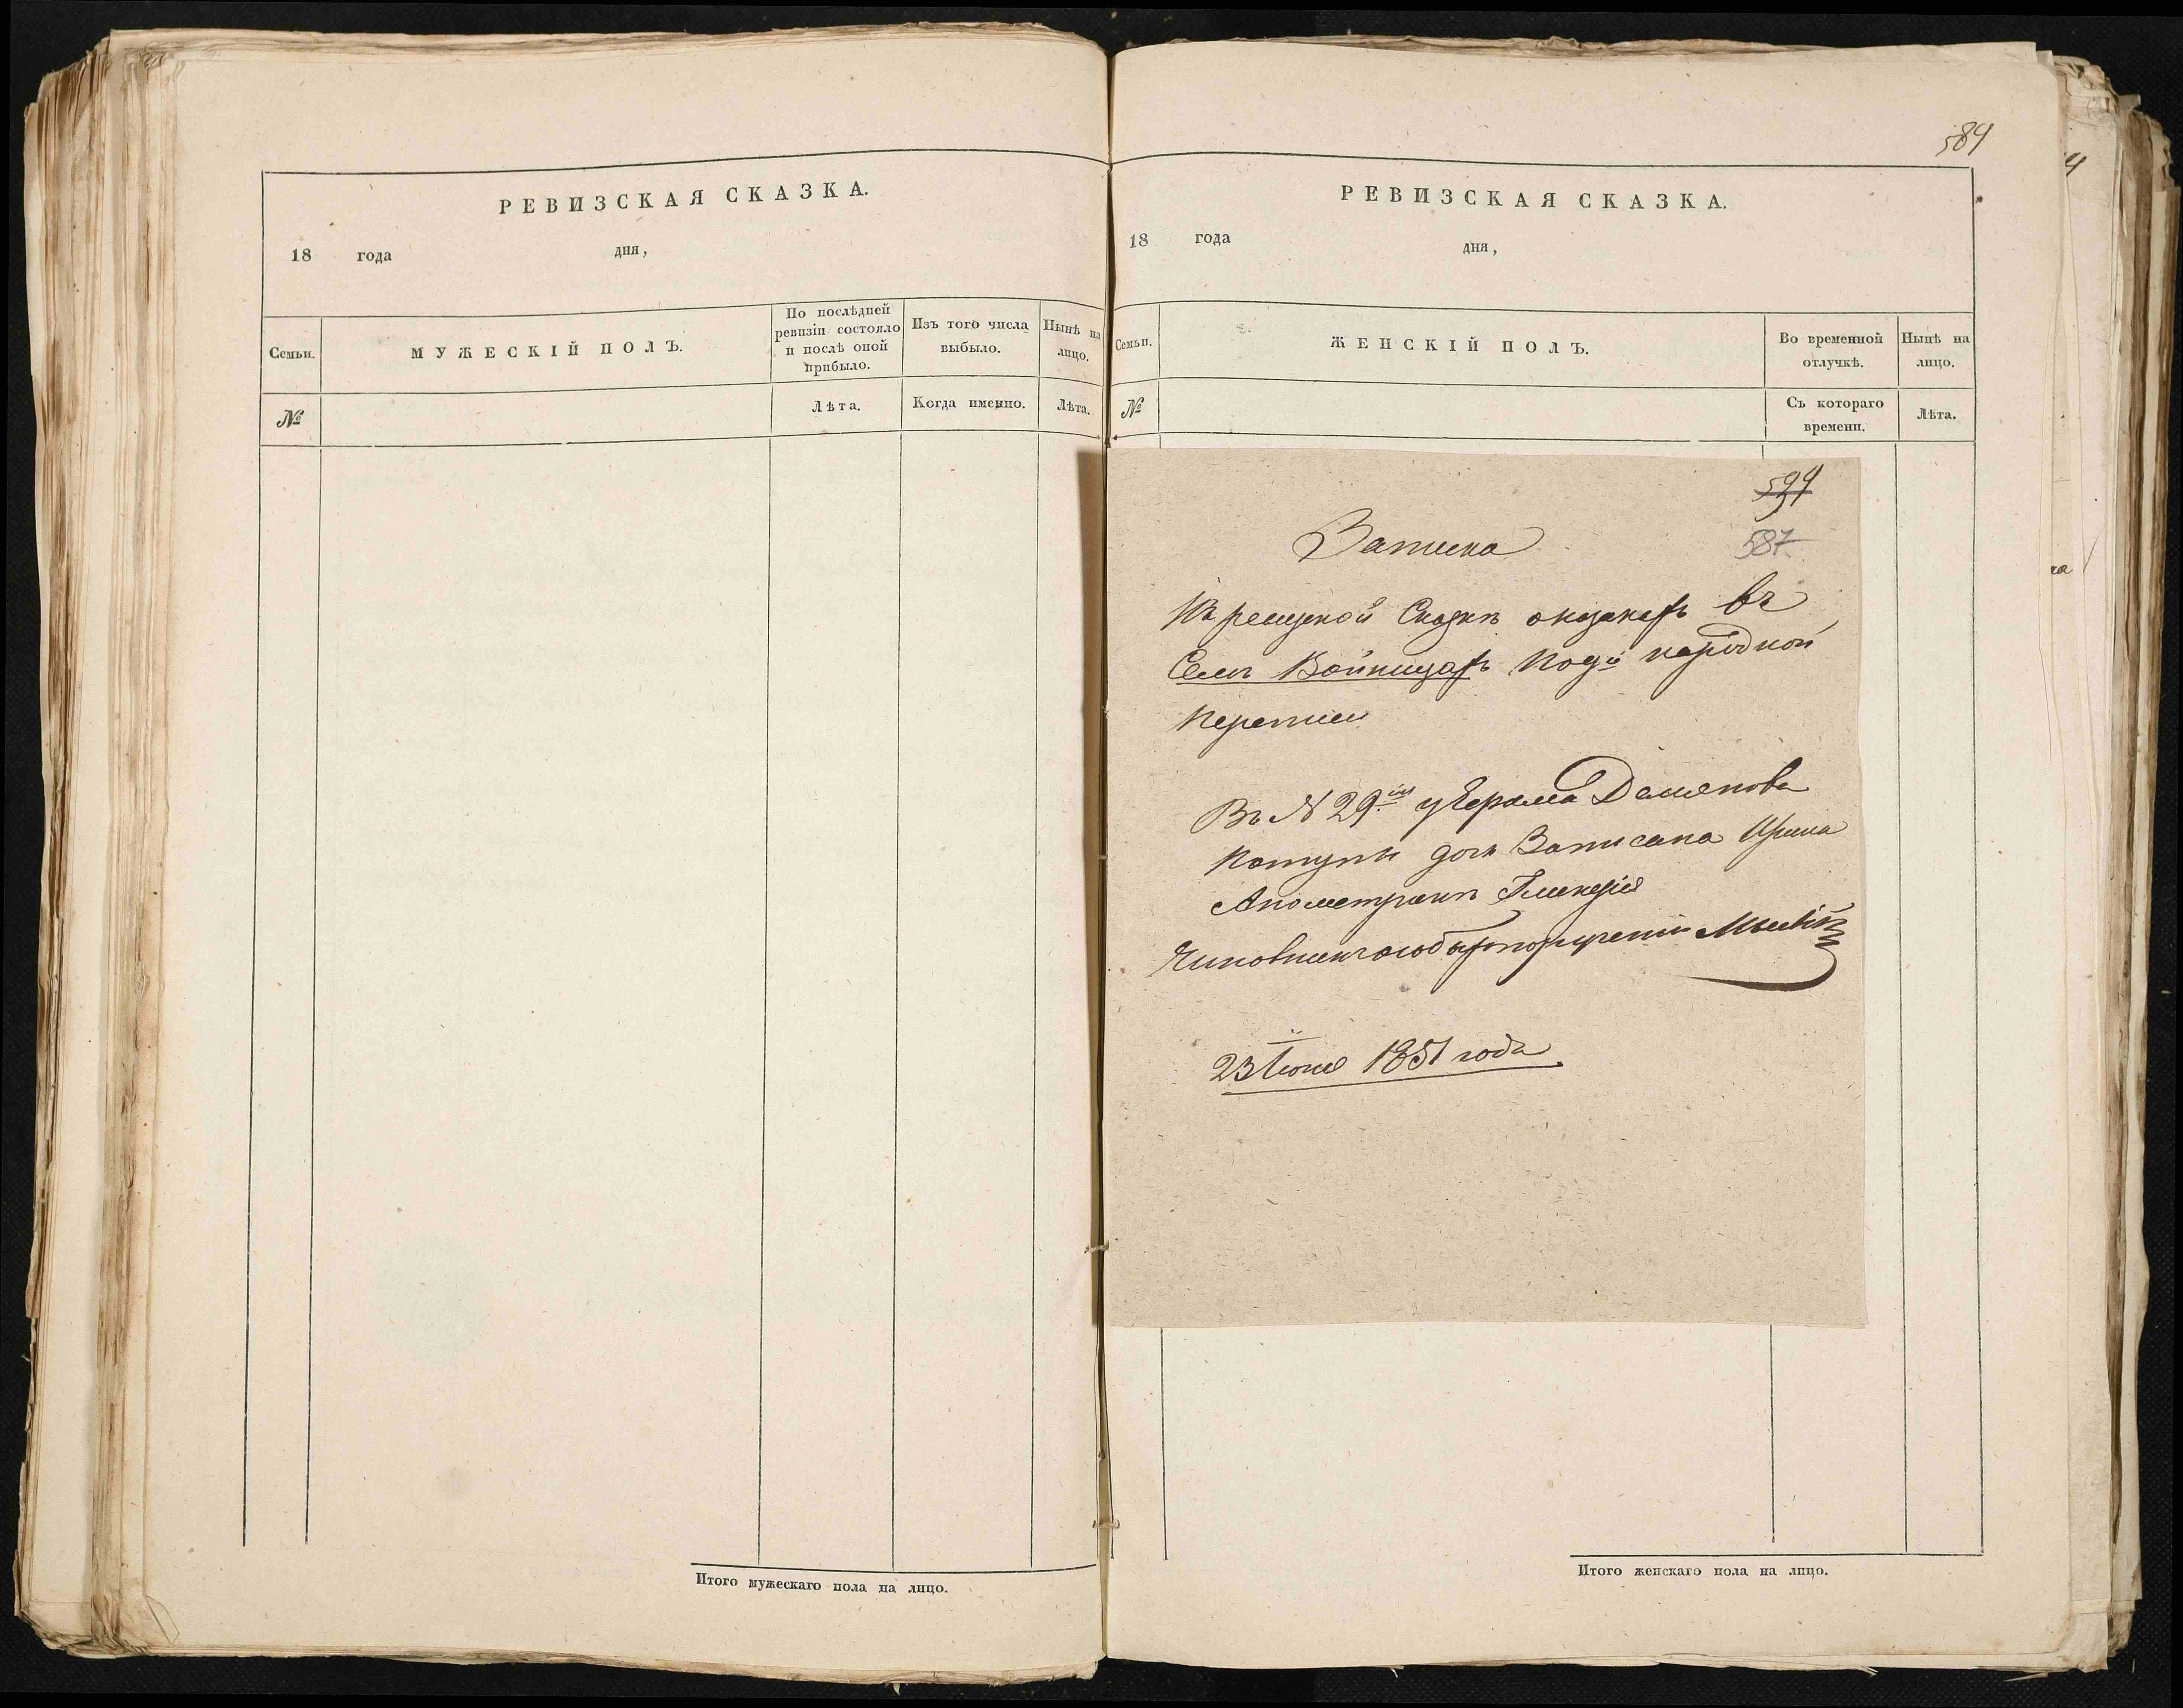 РЕВИЗСКАЯ СКАЗКА.
18 года дня,
Семьи.
МУЖЕСКІЙ ПОЛЪ.
По послѣдней
ревизіи состояло
и послѣ оной
прибыло.
Изъ того числа
выбыло.
Нынѣ на
лицо.
№
Лѣта.
Когда именно.
Лѣта.
Итого мужескаго пола на лицо.
584
РЕВИЗСКАЯ СКАЗКА.
18 года дня,
Семьи.
ЖЕНСКІЙ ПОЛЪ.
Во временной
отлучкѣ.
Нынѣ на
лицо.
№
Съ котораго
времени.
Лѣта.
594
587
Записка
Къ Сказкѣ въ
Селѣ Войницахъ народной
переписи
Въ № 29. у Демянова
дочь Записана Ирина
Апометрикѣ Гликерія
Чиновникъ
23 Іюня 1851 года
Итого женскаго пола на лицо.